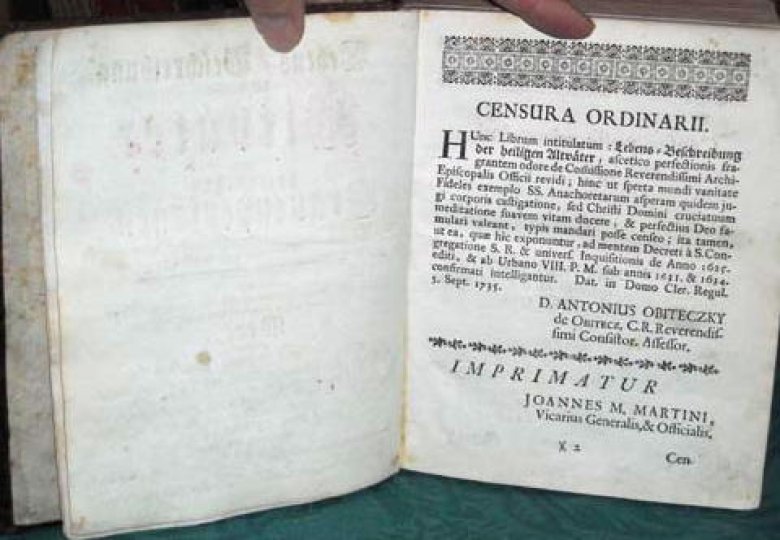 CENSURA ORDINARII.
HUnc Librum intitulatum: Lebens-Beschreibung
der heiligen Altväter, ascetico perfectionis fra-
grantem odore de Comissione Reverendissimi Archi-
Episcopalis Officii revidi; hinc ut spreta mundi vanitate
Fideles exemplo SS. Anachoretarum asperam quidem ju-
gi corporis castigatione, sed Christi Domini cruciatuum
meditatione suavem vitam ducere, & perfectius Deo fa-
mulari valeant, typis mandari posse censeo; ita tamen,
ut ea, quæ hic exponuntur, ad mentem Decreti à S. Con-
gregatione S. R. & univers. Inquisitionis de Anno 1625.
editi, & ab Urbano VIII. P. M. sub annis 1631. & 1634.
confirmati intelligantur. Dat. in Domo Cler. Regul.
5. Sept. 1735.
D. ANTONIUS OBITECZKY
de OBITECZ, C. R. Reverendis-
simi Consistor. Assessor.
IMPRIMATUR
JOANNES M. MARTINI,
Vicarius Generalis, & Officialis.
X 2
Cen